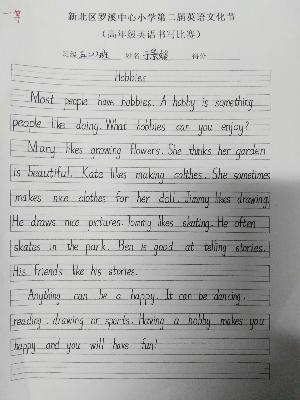 一等
新北区罗溪中心小学第二届英语文化节
（高年级英语书写比赛）
班级 五(2)班 姓名 得分
Hobbies
Most people have hobbies. A hobby is something
people like doing. What hobbies can you enjoy?
Mary likes growing flowers. She thinks her garden
is beautiful. Kate likes making colthes. She sometimes
makes nice clothes for her doll. Jimmy likes drawing.
He draws nice pictures. Tommy likes skating. He often
skates in the park. Ben is good at telling stories.
His friends like his stories.
Anything can be a happy. It can be dancing,
reading, drawing or sports. Having a hobby makes you
happy and you will have fun!